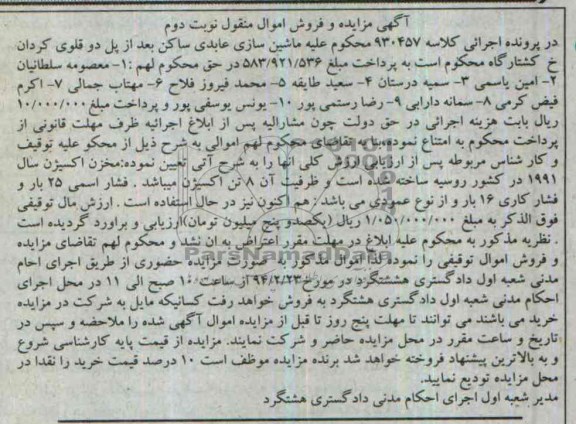 آگهی مزایده و فروش اموال منقول نوبت دوم
در پرونده اجرائی کلاسه ۹۳۰۴۵۷ محکوم علیه ماشین سازی عابدی ساکن بعد از پل دو قلوی کردان
خ کشتارگاه محکوم است به پرداخت مبلغ ۵۸۳/۹۲۱/۵۳۶ در حق محکوم لهم :۱- معصومه سلطانیان
۲- امین یاسمی ۳- سمیه درستان ۴- سعید طایفه ۵- محمد فیروز فلاح ۶- مهتاب جمالی ۷- اکرم
فیض کرمی ۸- سمانه دارابی ۹- رضا رستمی پور ۱۰- یونس یوسفی پور و پرداخت مبلغ ۱۰/۰۰۰/۰۰۰
ریال بابت هزینه اجرائی در حق دولت چون مشارالیه پس از ابلاغ اجرائیه ظرف مهلت قانونی از
پرداخت محکوم به امتناع نموده،بنا به تقاضای محکوم لهم اموالی به شرح ذیل از محکو علیه توقیف
و کار شناس مربوطه پس از ارزیابی ارزش کلی آنها را به شرح آتی تعیین نموده:مخزن اکسیژن سال
۱۹۹۱ در کشور روسیه ساخته شده است و ظرفیت آن ۸ تن اکسیژن میباشد . فشار اسمی ۲۵ بار و
فشار کاری ۱۶ بار و از نوع عمودی می باشد : هم اکنون نیز در حال استفاده است . ارزش مال توقیفی
فوق الذکر به مبلغ ۱/۰۵۰/۰۰۰/۰۰۰ ریال (یکصدو پنج میلیون تومان)ارزیابی و براورد گردیده است
. نظریه مذکور به محکوم علیه ابلاغ در مهلت مقرر اعتراض به ان نشد و محکوم لهم تقاضای مزایده
و فروش اموال توقیفی را نموده.لذا اموال مذکور به صورت مزایده حضوری از طریق اجرای احام
مدنی شعبه اول دادگستری هششتگرد در مورخ ۹۴/۲/۲۳ از ساعت ۱۰ صبح الی ۱۱ در محل اجرای
احکام مدنی شعبه اول دادگستری هشتگرد به فروش خواهد رفت کسانیکه مایل به شرکت در مزایده
خرید می باشند می توانند تا مهلت پنج روز تا قبل از مزایده اموال آگهی شده را ملاحضه و سپس در
تاریخ و ساعت مقرر در محل مزایده حاضر و شرکت نمایند. مزایده از قیمت پایه کارشناسی شروع
و به بالاترین پیشنهاد فروخته خواهد شد برنده مزایده موظف است ۱۰ درصد قیمت خرید را نقدا در
محل مزایده تودیع نمایید.
مدیر شعبه اول اجرای احکام مدنی دادگستری هشتگرد
ParsNamadData